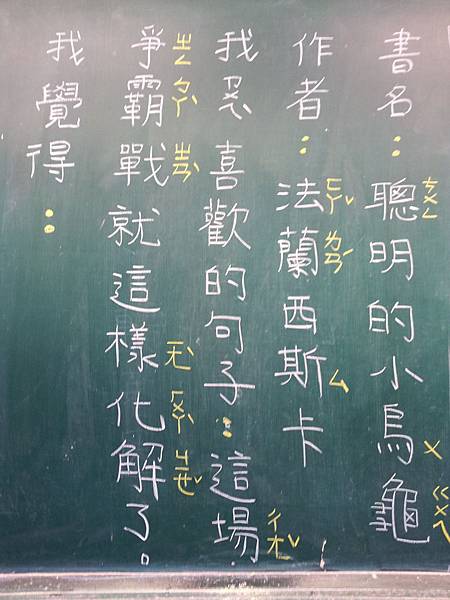 書名：聰明的小烏龜
ㄘㄨㄥ ㄨ ㄍㄨㄟ
作者：法蘭西斯卡
ㄈㄚˇ ㄌㄢˊ ㄙ
我最喜歡的句子：這場
ㄔㄤˇ
爭霸戰就這樣化解了。
ㄓㄥ ㄅㄚˋ ㄓㄢˋ ㄏㄨㄚˋ ㄐㄧㄝˇ
我覺得：